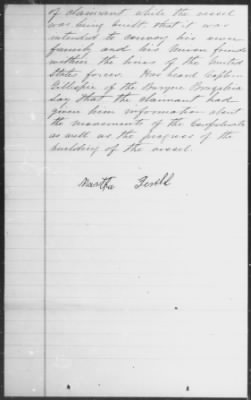 of claimant while the vessel
was being built that it was
intended to convey his own
family and his Union friends
within the lines of the United
States forces. Has heard Captain
Gillespie of the
say that the claimant had
given him information about
the movements of the Confederates
as well as the progress of the
building of the vessel.
Martha